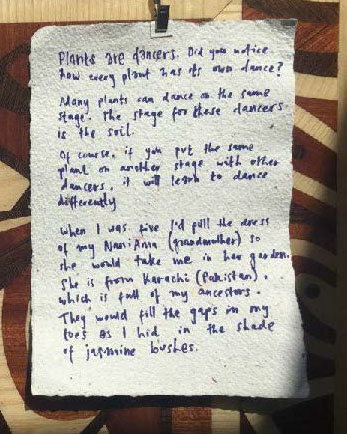 Plants are dancers. Did you notice
how every plant has its own dance?
Many plants can dance on the same
stage. The stage for these dancers
is the soil.
Of course, if you put the same
plant on another stage with other
dancers, it will learn to dance
differently
When I was five I'd pull the dress
of my Nani Anna (grandmother) so
she would take me in her garden.
She is from Karachi (Pakistan).
which is full of my ancestors.
They would fill the gaps in my
toes as I hid in the shade
of jasmine bushes.